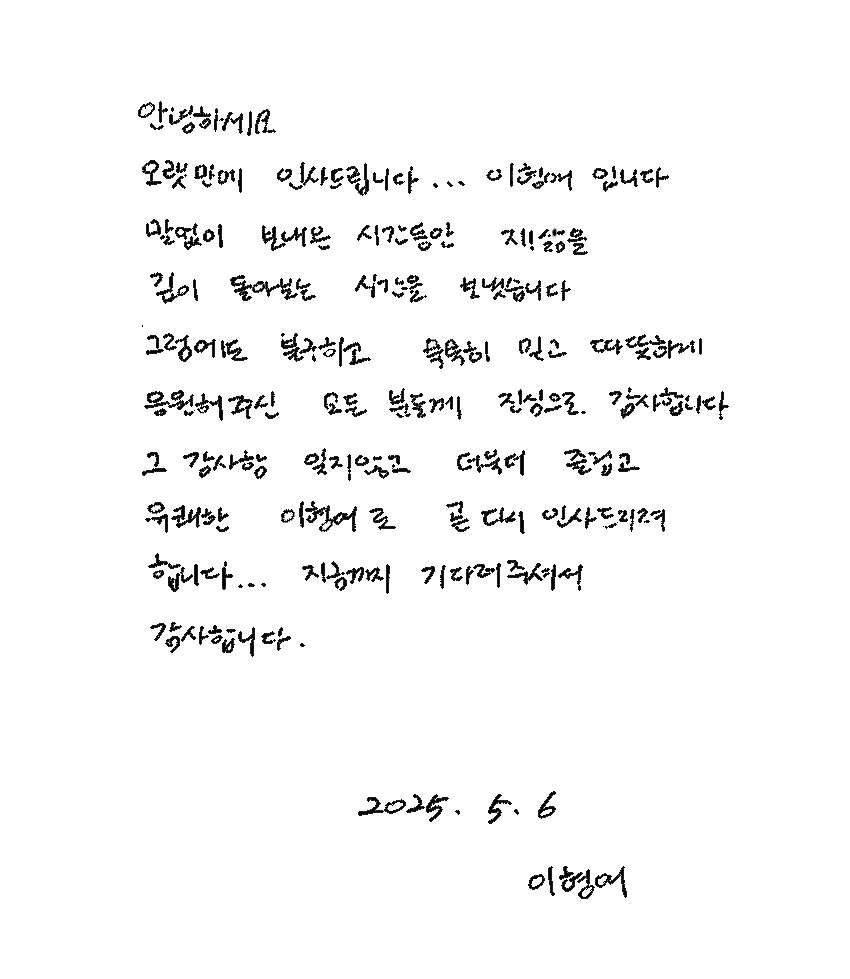 안녕하세요
오랫만에 인사드립니다... 이형여 입니다
말없이 보내온 시간동안 제! 삶을
깊이 돌아보는 시간을 보냈습니다
그럼에도 불구하고 묵묵히 믿고 따뜻하게
응원해주신 모든 분들께 진심으로 감사합니다
그 감사함 잊지않고 더욱더 즐겁고
유쾌한 이형여로 곧 다시 인사드리려
합니다... 지금까지 기다려주셔서
감사합니다.
2025. 5. 6
이형여